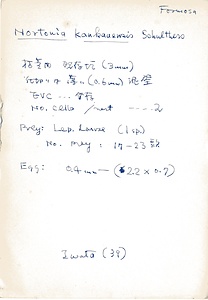 Formosa
Nortonia kankauensis Schulthess
(3mm)
(0.6mm) 泥壁
EVC ...
No. cells / nest ---- 2
Prey: Lep. Larvae (1 sp)
No. prey : 17-23 頭
Egg: 0.4 mm — (2.2 × 0.7)
Iwata (39)